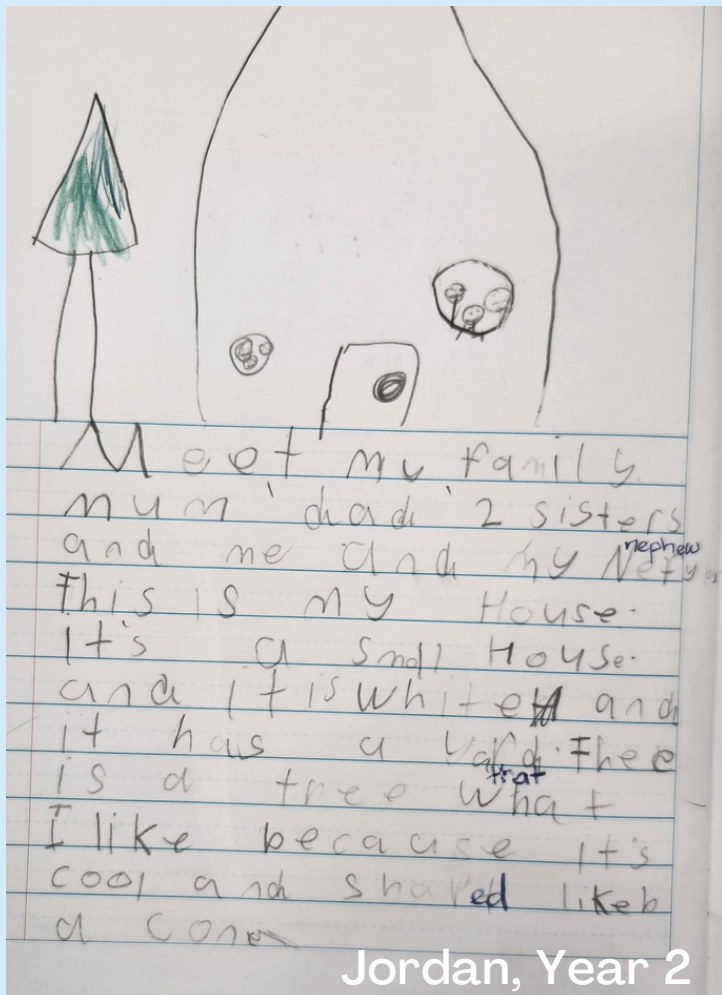 Meet my family
mum 'dad' 2 sisters
and me and my
nephew
This is my House.
It's a small House.
and it is white and
it has a yard. Thee
that
is a tree what
I like because it's
cool and shaped like
a cone
Jordan, Year 2